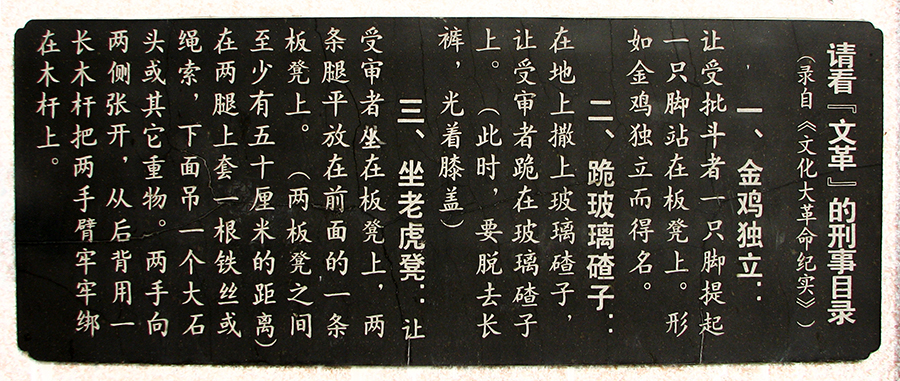 请看『文革』的刑事目录
（录自《文化大革命纪实》）
一、金鸡独立：
让受批斗者一只脚提起
一只脚站在板凳上。形
如金鸡独立而得名。
二、跪玻璃碴子：
在地上撒上玻璃碴子，
让受审者跪在玻璃碴子
上。（此时，要脱去长
裤，光着膝盖）
三、坐老虎凳：让
受审者坐在板凳上，两
条腿平放在前面的一条
板凳上。（两板凳之间
至少有五十厘米的距离）
在两腿上套一根铁丝或
绳索，下面吊一个大石
头或其它重物。两手向
两侧张开，从后背用一
长木杆把两手臂牢牢绑
在木杆上。